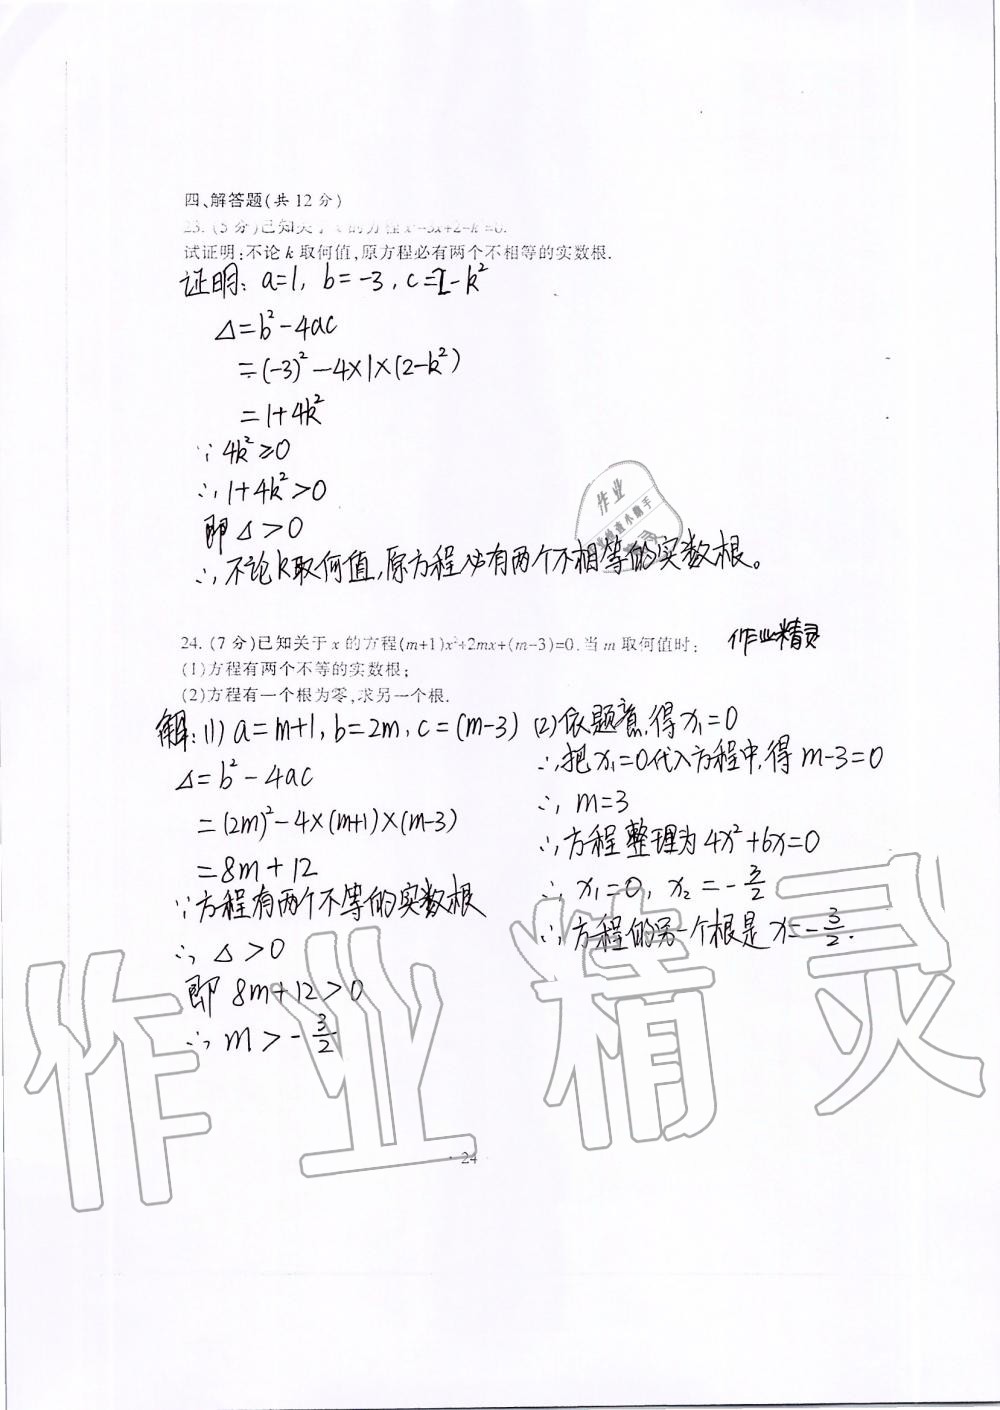 四、解答题(共12分)
23. (5分)已知关于x的方程x²-3x+2-k²=0.
试证明:不论k取何值,原方程必有两个不相等的实数根.
证明: a=1, b=-3, c=2-k²
Δ=b²-4ac
=(-3)²-4×1×(2-k²)
=1+4k²
∵4k²≥0
∴1+4k²>0
即Δ>0
∴不论k取何值,原方程必有两个不相等的实数根。
作业
小助手
24. (7分)已知关于x的方程(m+1)x²+2mx+(m-3)=0.当m取何值时:
作业精灵
(1)方程有两个不等的实数根;
(2)方程有一个根为零,求另一个根.
解:(1) a=m+1, b=2m, c=(m-3)
Δ=b²-4ac
=(2m)²-4×(m+1)×(m-3)
=8m+12
∵方程有两个不等的实数根
∴Δ>0
即 8m+12>0
∴m>-3/2
(2)依题意,得x₁=0
∴把x₁=0代入方程中,得m-3=0
∴m=3
∴方程整理为4x²+6x=0
∴x₁=0, x₂=-3/2
∴方程的另一个根是x=-3/2.
作业精灵
·24·